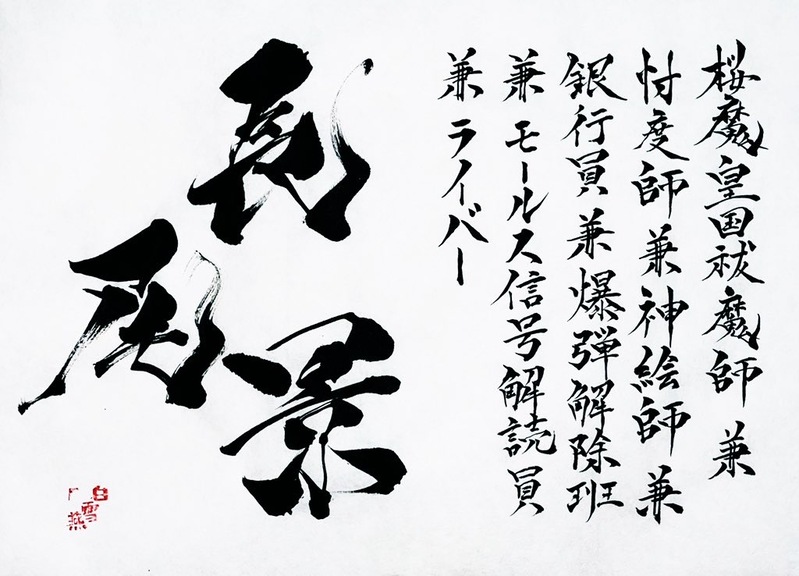 桜魔皇国祓魔師 兼
忖度師兼神絵師 兼
銀行員 兼爆弾解除班
兼モールス信号解読員
兼ライバー
長尾景